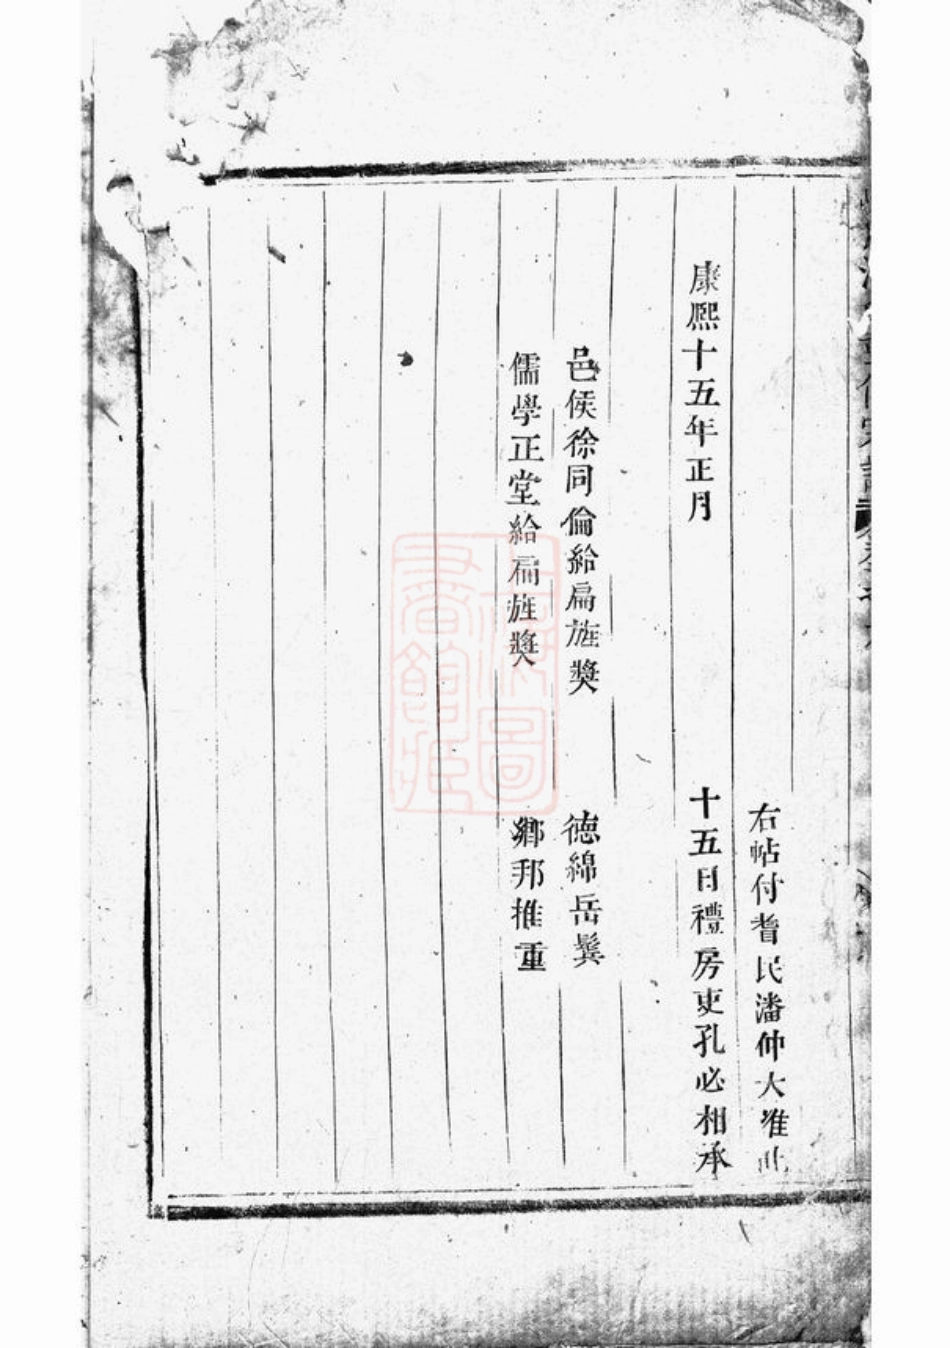 右帖付耆民潘仲大准此
康熙十五年正月 十五日禮房吏孔必相承
邑侯徐同倫給扁旌獎 德綿岳鬂
儒學正堂給扁旌獎 鄉邦推重
上海圖書館藏